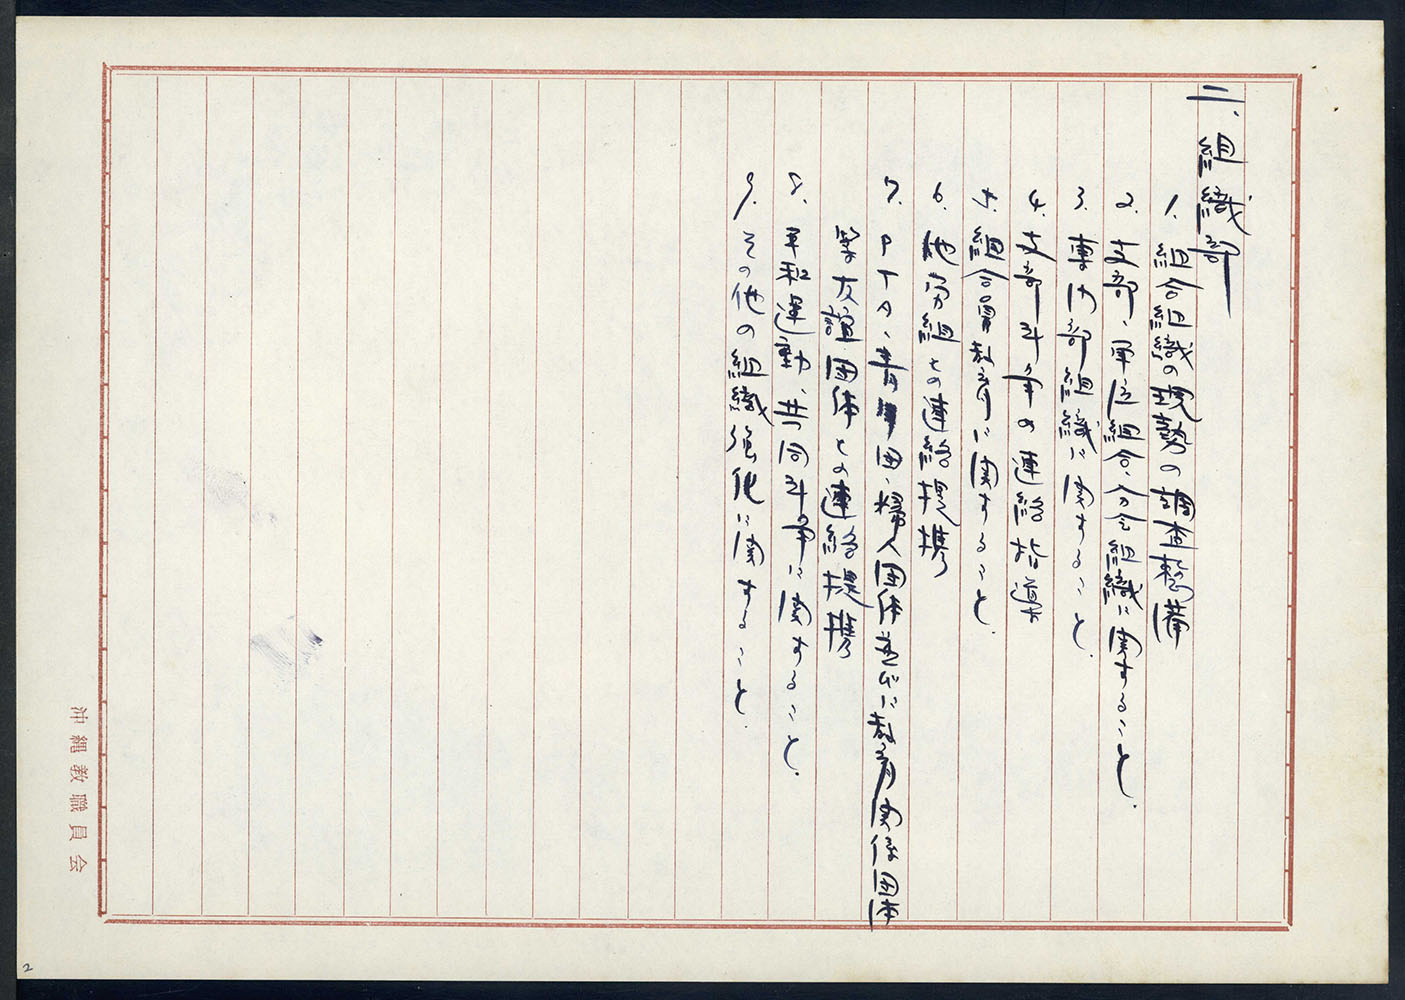 二、組織部
1. 組合組織の現勢の調査整備
2. 支部、単位組合、分会組織に関すること.
3. 専門部組織に関すること.
4. 支部斗争の連絡指導
5. 組合員教育に関すること.
6. 他労組との連絡提携
7. PTA、青年団、婦人団体並びに教育関係団体
等友誼団体との連絡提携
8. 平和運動、共同斗争に関すること.
9. その他の組織強化に関すること.
沖縄教職員会
2